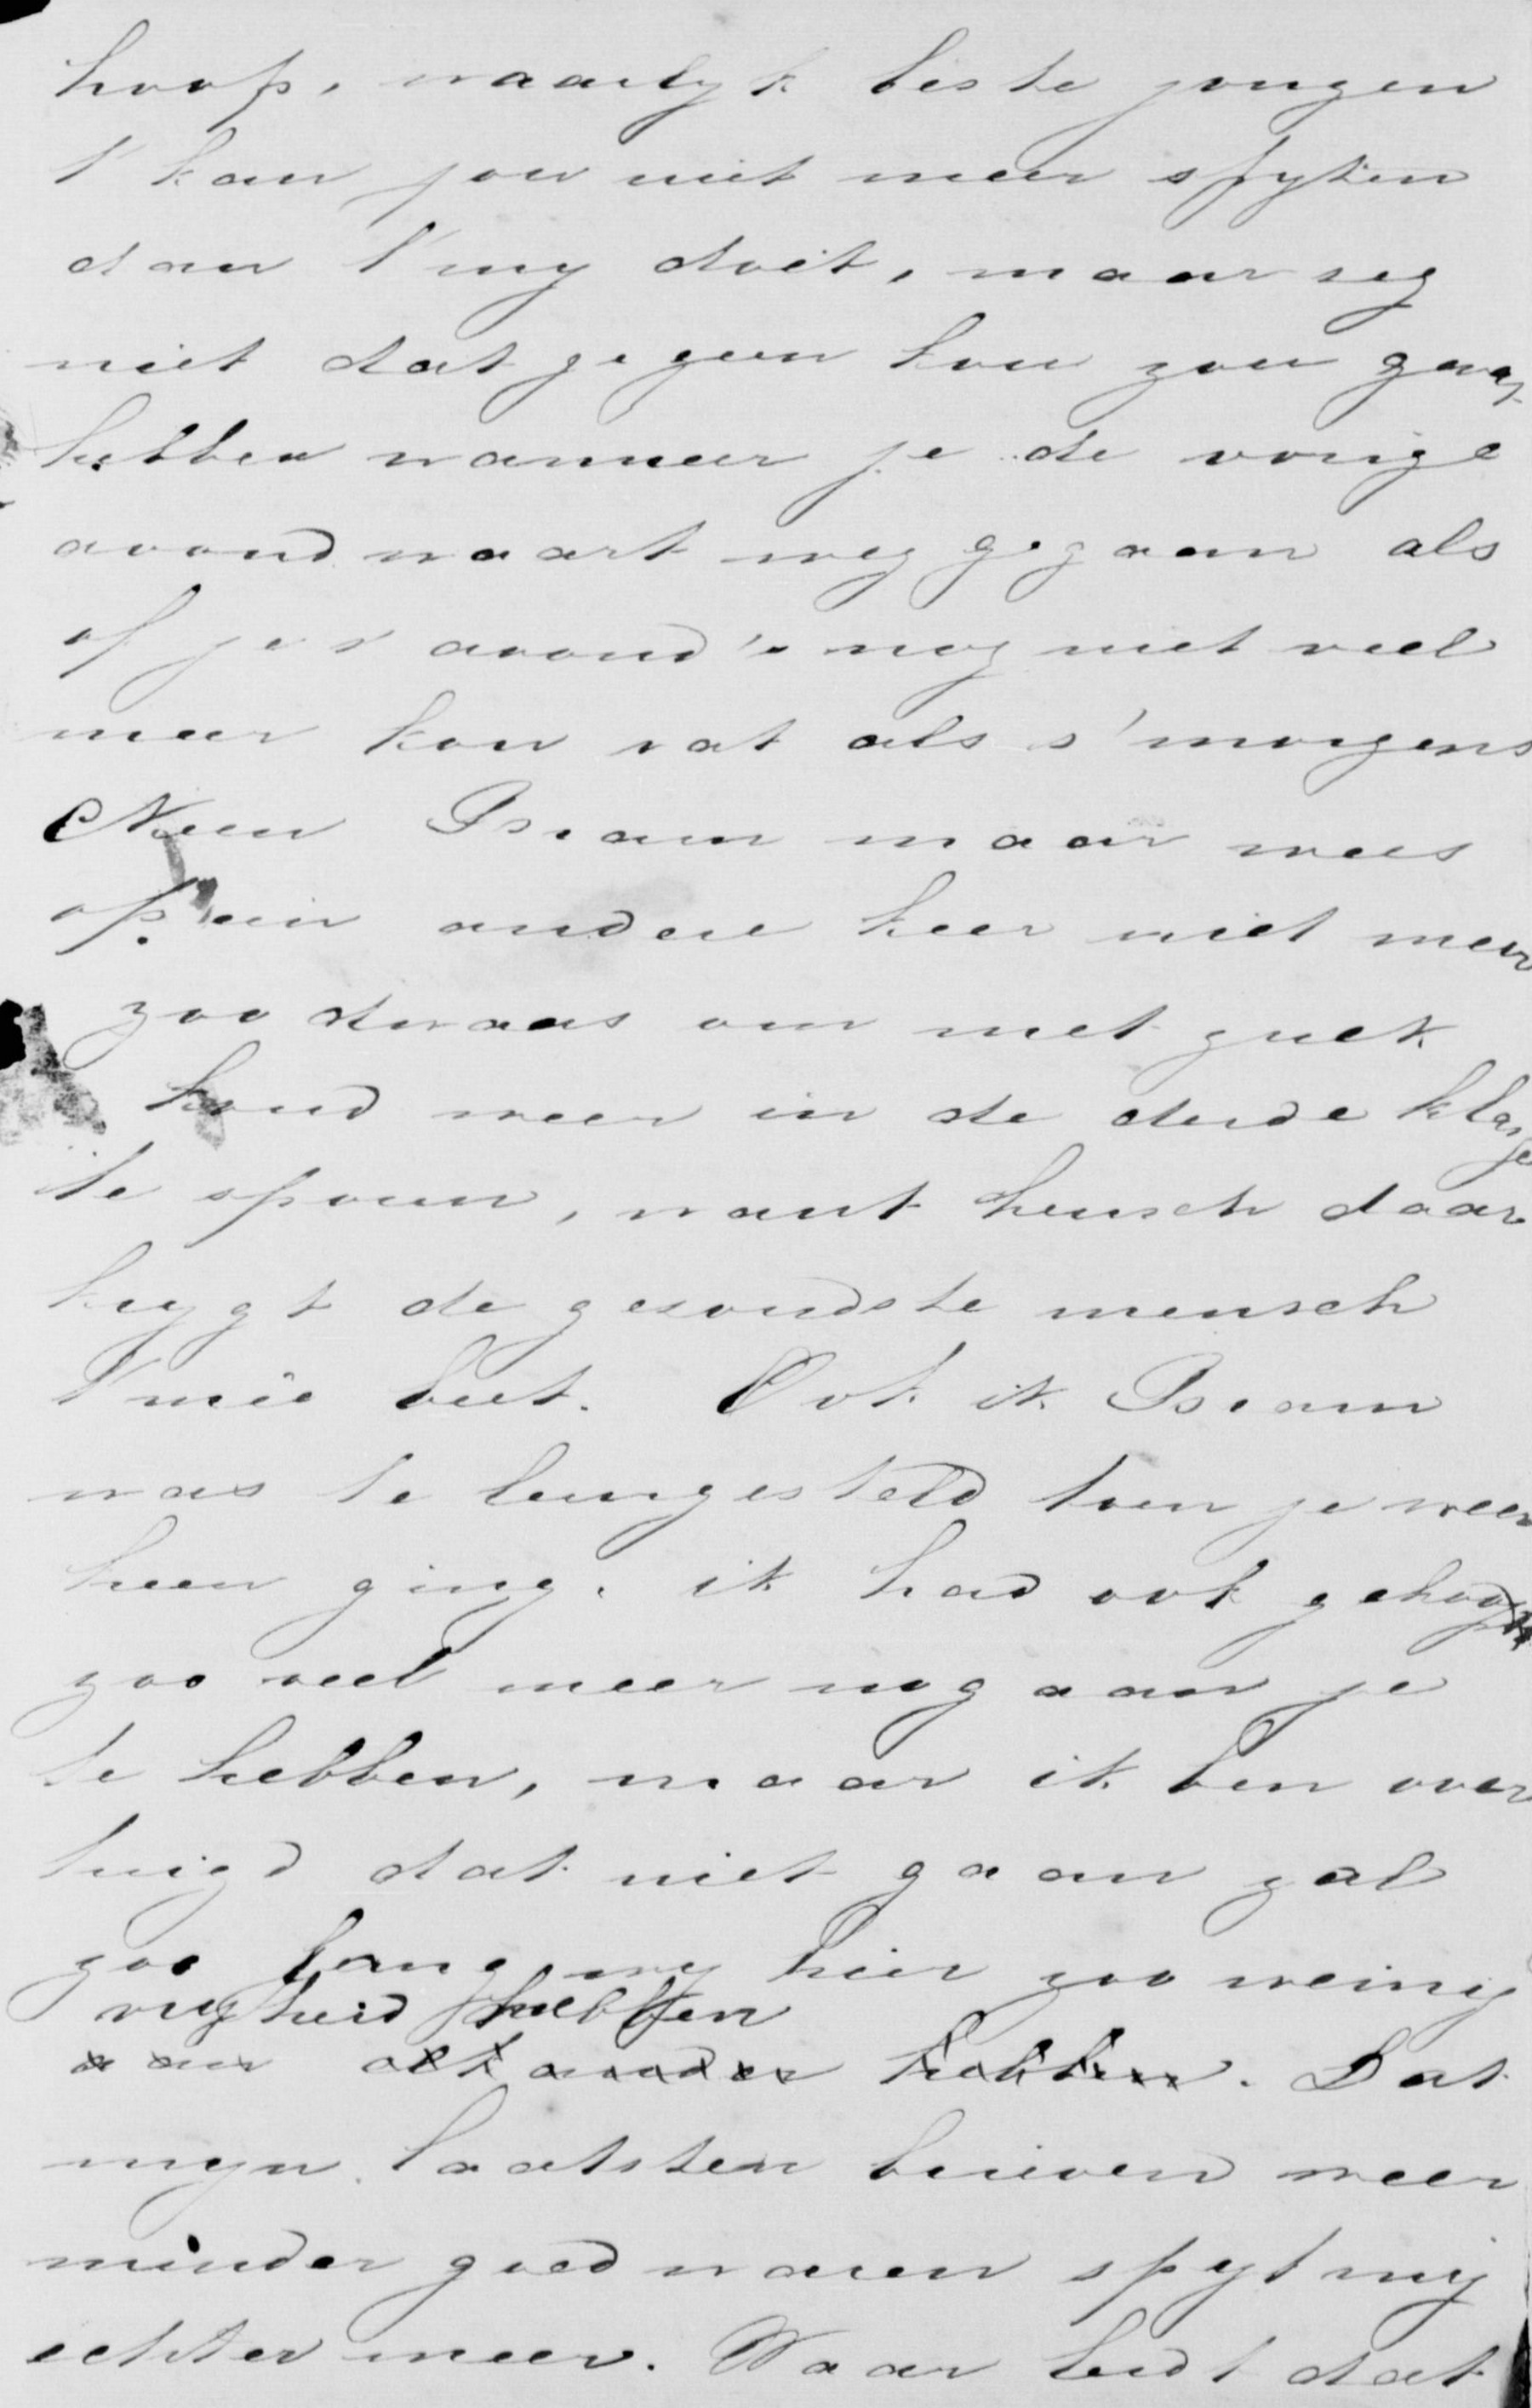 hoop, waarlyk beste jongen
't kan jou niet meer spyten
dan 't my doet, maar zeg
niet dat je geen kou zou gevat
hebben wanneer je de vorige
avond waart weg gegaan als
of je s' avond's nog niet veel
meer kou vat als s' morgens
Neen Bram maar wees
op een andere keer niet meer
zoo dwaas om met zulk
koud weer in de derde klasse
te sporen, want heusch daar
krygt de gezondste mensch
't mee beet. Ook ik Bram
was te leurgesteld toen je weer
heen ging, ik had ook gehoopt
zoo veel meer nog aan je
te hebben, maar ik ben over
tuigd dat niet gaan zal
zoo lang wy hier zoo weinig
vryheid hebben
aan elkander hebben. Dat
myn laatsten brieven weer
minder goed waren spyt my
echter meer. Waar leidt dat